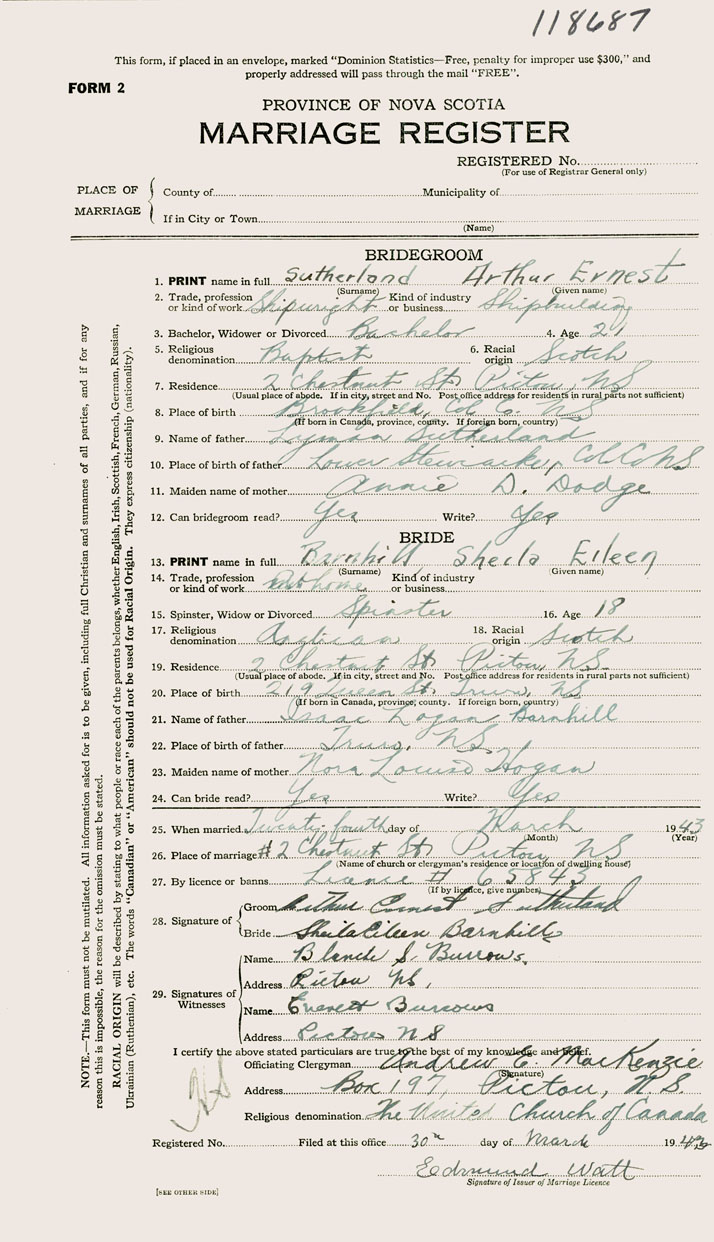 118687
This form, if placed in an envelope, marked "Dominion Statistics—Free, penalty for improper use $300," and
properly addressed will pass through the mail "FREE".
FORM 2
PROVINCE OF NOVA SCOTIA
MARRIAGE REGISTER
REGISTERED No.
(For use of Registrar General only)
PLACE OF MARRIAGE
County of Municipality of
If in City or Town
(Name)
BRIDEGROOM
1. PRINT name in full Sutherland Arthur Ernest
(Surname) (Given name)
2. Trade, profession or kind of work Shipwright Kind of industry or business Shipbuilding
3. Bachelor, Widower or Divorced Bachelor 4. Age 21
5. Religious denomination Baptist 6. Racial origin Scotch
7. Residence 2 Chestnut St. Pictou, NS
(Usual place of abode. If in city, street and No. Post office address for residents in rural parts not sufficient)
8. Place of birth Brookfield, Col. C. NS
(If born in Canada, province, county. If foreign born, country)
9. Name of father Lyman Sutherland
10. Place of birth of father Lower Stewiacke, Col Co NS
11. Maiden name of mother Annie D. Dodge
12. Can bridegroom read? Yes Write? Yes
BRIDE
13. PRINT name in full Barnhill Sheila Eileen
(Surname) (Given name)
14. Trade, profession or kind of work At home Kind of industry or business
15. Spinster, Widow or Divorced Spinster 16. Age 18
17. Religious denomination Anglican 18. Racial origin Scotch
19. Residence 2 Chestnut St. Pictou, NS
(Usual place of abode. If in city, street and No. Post office address for residents in rural parts not sufficient)
20. Place of birth 219 Queen St. Truro, NS
(If born in Canada, province, county. If foreign born, country)
21. Name of father Isaac Logan Barnhill
22. Place of birth of father Truro, NS.
23. Maiden name of mother Nora Louise Hogan
24. Can bride read? Yes Write? Yes
25. When married Twenty fourth day of March 1943
(Month) (Year)
26. Place of marriage #2 Chestnut St. Pictou, NS
(Name of church or clergyman's residence or location of dwelling house)
27. By licence or banns Licence # 65843
(If by licence, give number)
28. Signature of
Groom Arthur Ernest Sutherland
Bride Sheila Eileen Barnhill
29. Signatures of Witnesses
Name Blanche S. Burrows
Address Pictou NS,
Name Everett Burrows
Address Pictou NS
I certify the above stated particulars are true to the best of my knowledge and belief.
Officiating Clergyman Andrew E. MacKenzie
(Signature)
Address Box 197, Pictou, N.S.
Religious denomination The United Church of Canada
Registered No. Filed at this office 30th day of March 1943
Edmund Watt
Signature of Issuer of Marriage Licence
[SEE OTHER SIDE]
NOTE.—This form must not be mutilated. All information asked for is to be given, including full Christian and surnames of all parties, and if for any
reason this is impossible, the reason for the omission must be stated.
RACIAL ORIGIN will be described by stating to what people or race each of the parents belongs, whether English, Irish, Scottish, French, German, Russian,
Ukrainian (Ruthenian), etc. The words "Canadian" or "American" should not be used for Racial Origin. They express citizenship (nationality).